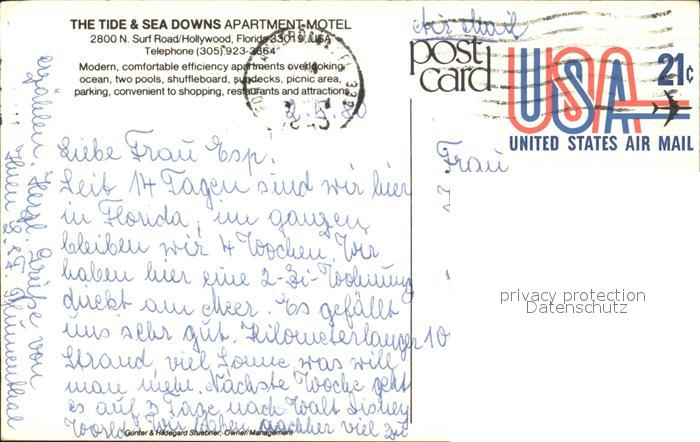 THE TIDE & SEA DOWNS APARTMENT-MOTEL
2800 N. Surf Road/Hollywood, Florida 33019, USA
Telephone (305) 923-3864
Modern, comfortable efficiency apartments overlooking
ocean, two pools, shuffleboard, sundecks, picnic area,
parking, convenient to shopping, restaurants and attractions.
Air mail
post
card
USA 21¢
UNITED STATES AIR MAIL
2.5.80
Liebe Frau Esp.
Seit 14 Tagen sind wir hier
in Florida, im ganzen
bleiben wir 4 Wochen. Wir
haben hier eine 2-Zi-Wohnung
direkt am Meer. Es gefällt
uns sehr gut. Kilometerlanger
Strand, viel Sonne, was will
man mehr. Nächste Woche geht
es auf 3 Tage nach Walt Disney
World. Wir haben nachher viel zu
erzählen. Herzl. Grüße von
Ihnen
Günter & Hildegard Stuebner, Owner/Management
Frau
10
privacy protection
Datenschutz